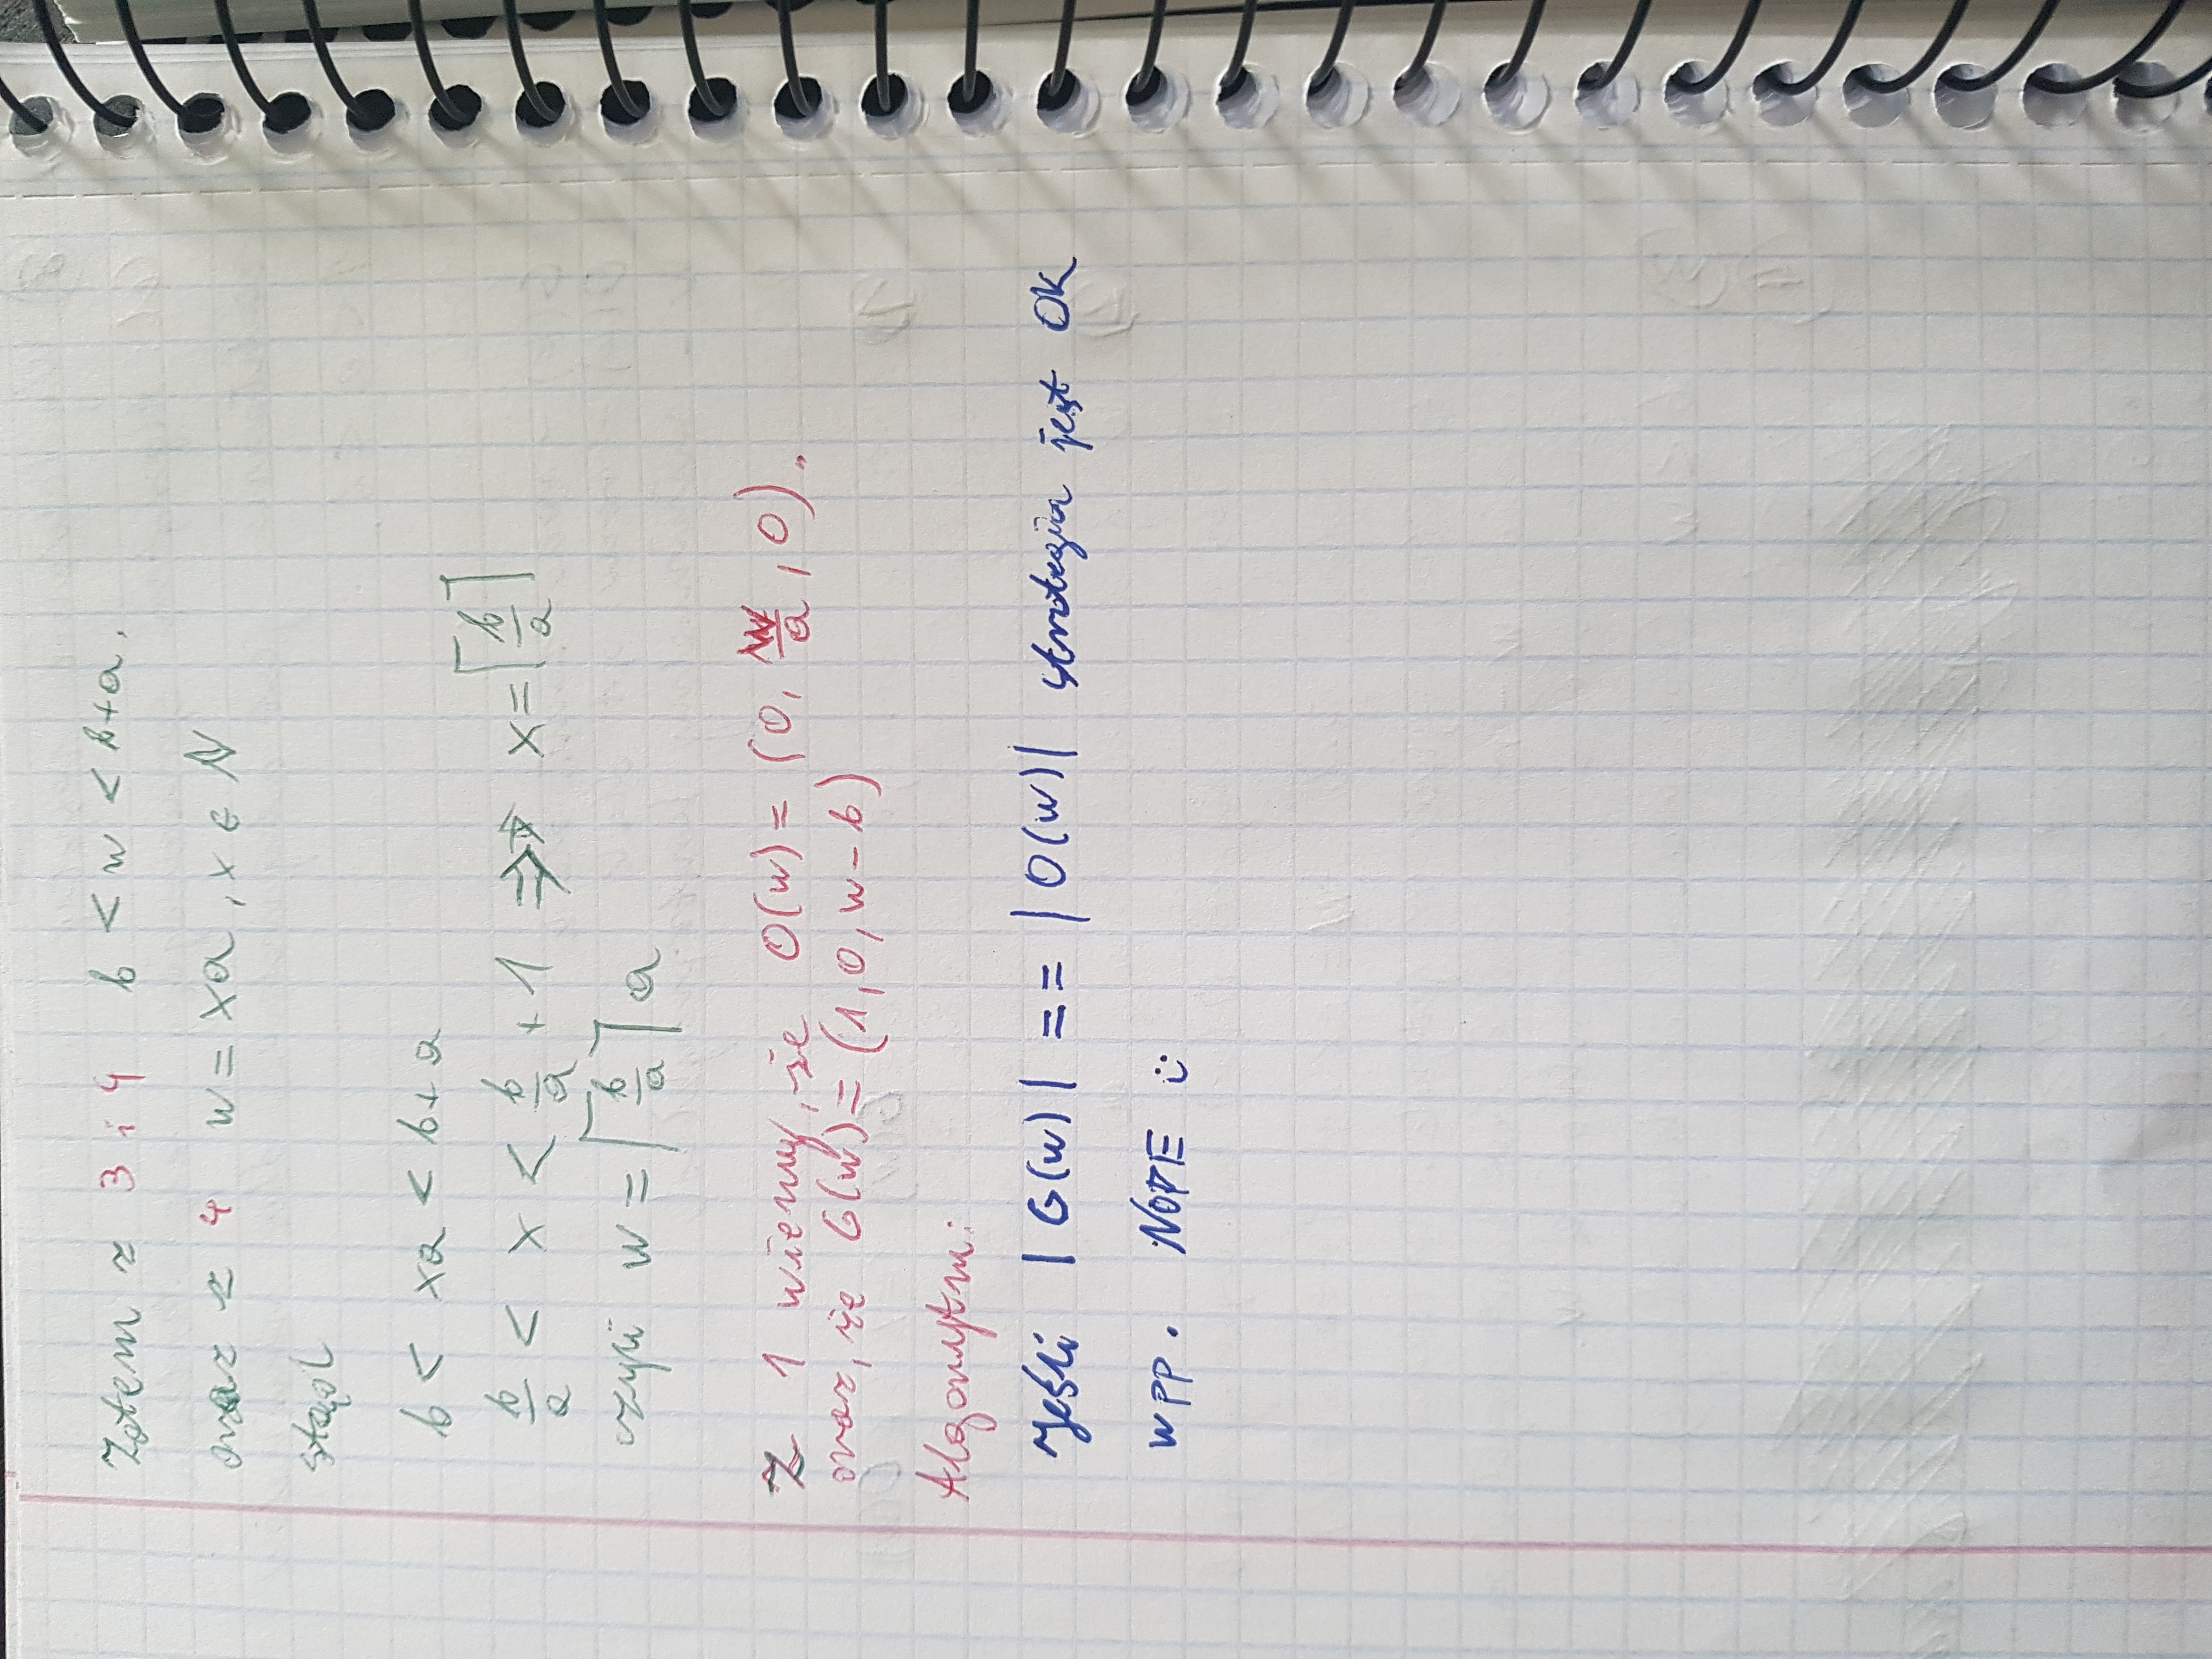 Zatem z 3 i 4 b < w < b+a.
oraz z 4 w = xa, x ∈ N
stąd
b < xa < b+a
b/a < x < b/a + 1 ⇒ x = ⌈b/a⌉
czyli w = ⌈b/a⌉ a
Z 1 wiemy, że O(w) = (0, w/a, 0).
oraz, że G(w) = (1, 0, w-b)
Algorytm:
Jeśli |G(w)| == |O(w)| strategia jest OK
wpp. NOPE :)